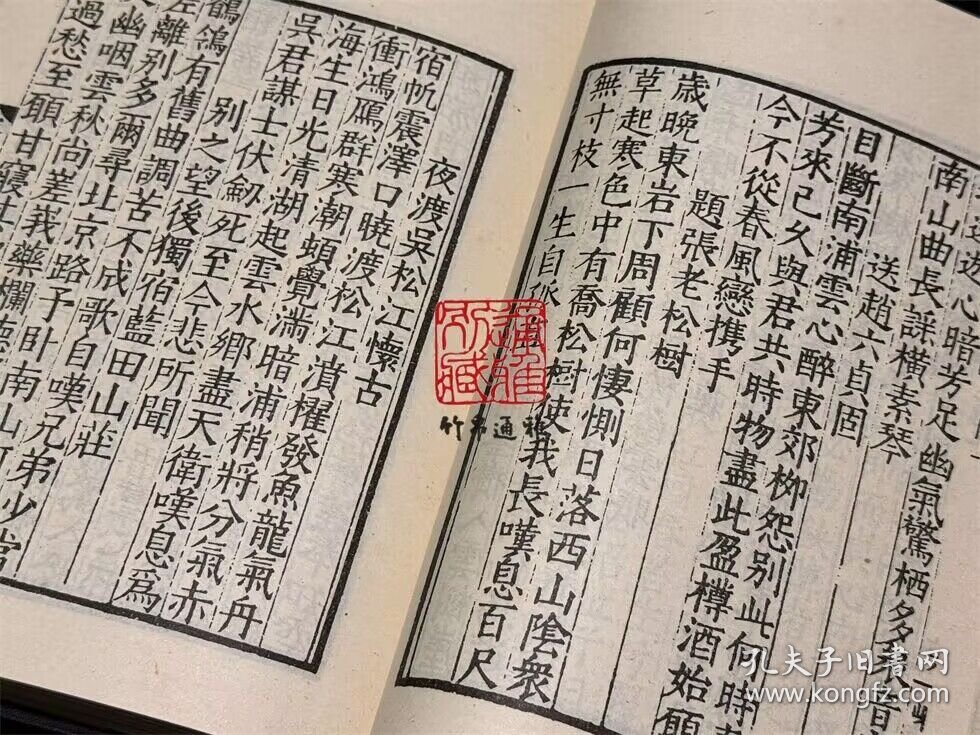 心芳足幽氣驚栖多
南山曲長謡橫素琴
送趙六貞固
目斷南浦雲心醉東郊柳怨别此何時
芳來已久與君共時物盡此盈樽酒始願
今不從春風戀携手
題張老松樹
歲晚東岩下周顧何悽惻日落西山陰衆
草起寒色中有喬松樹使我長嘆息百尺
無寸枝一生自
夜渡吳松江懷古
宿帆震澤口曉渡松江濆櫂發魚龍氣丹
衝鴻鴈群寒潮頓覺滿暗浦稍將分氣赤
海生日光清湖起雲水鄉盡天衛嘆息爲
吳君謀士伏劒死至今悲所聞
别之望後獨宿藍田山莊
鶺鴒有舊曲調苦不成歌自嘆兄弟少常
離别多爾尋北京路予卧南山
幽咽雲秋尚差我藥欄
過愁至願甘寢
所藏
竹 通
孔夫子旧书网
www.kongfz.com